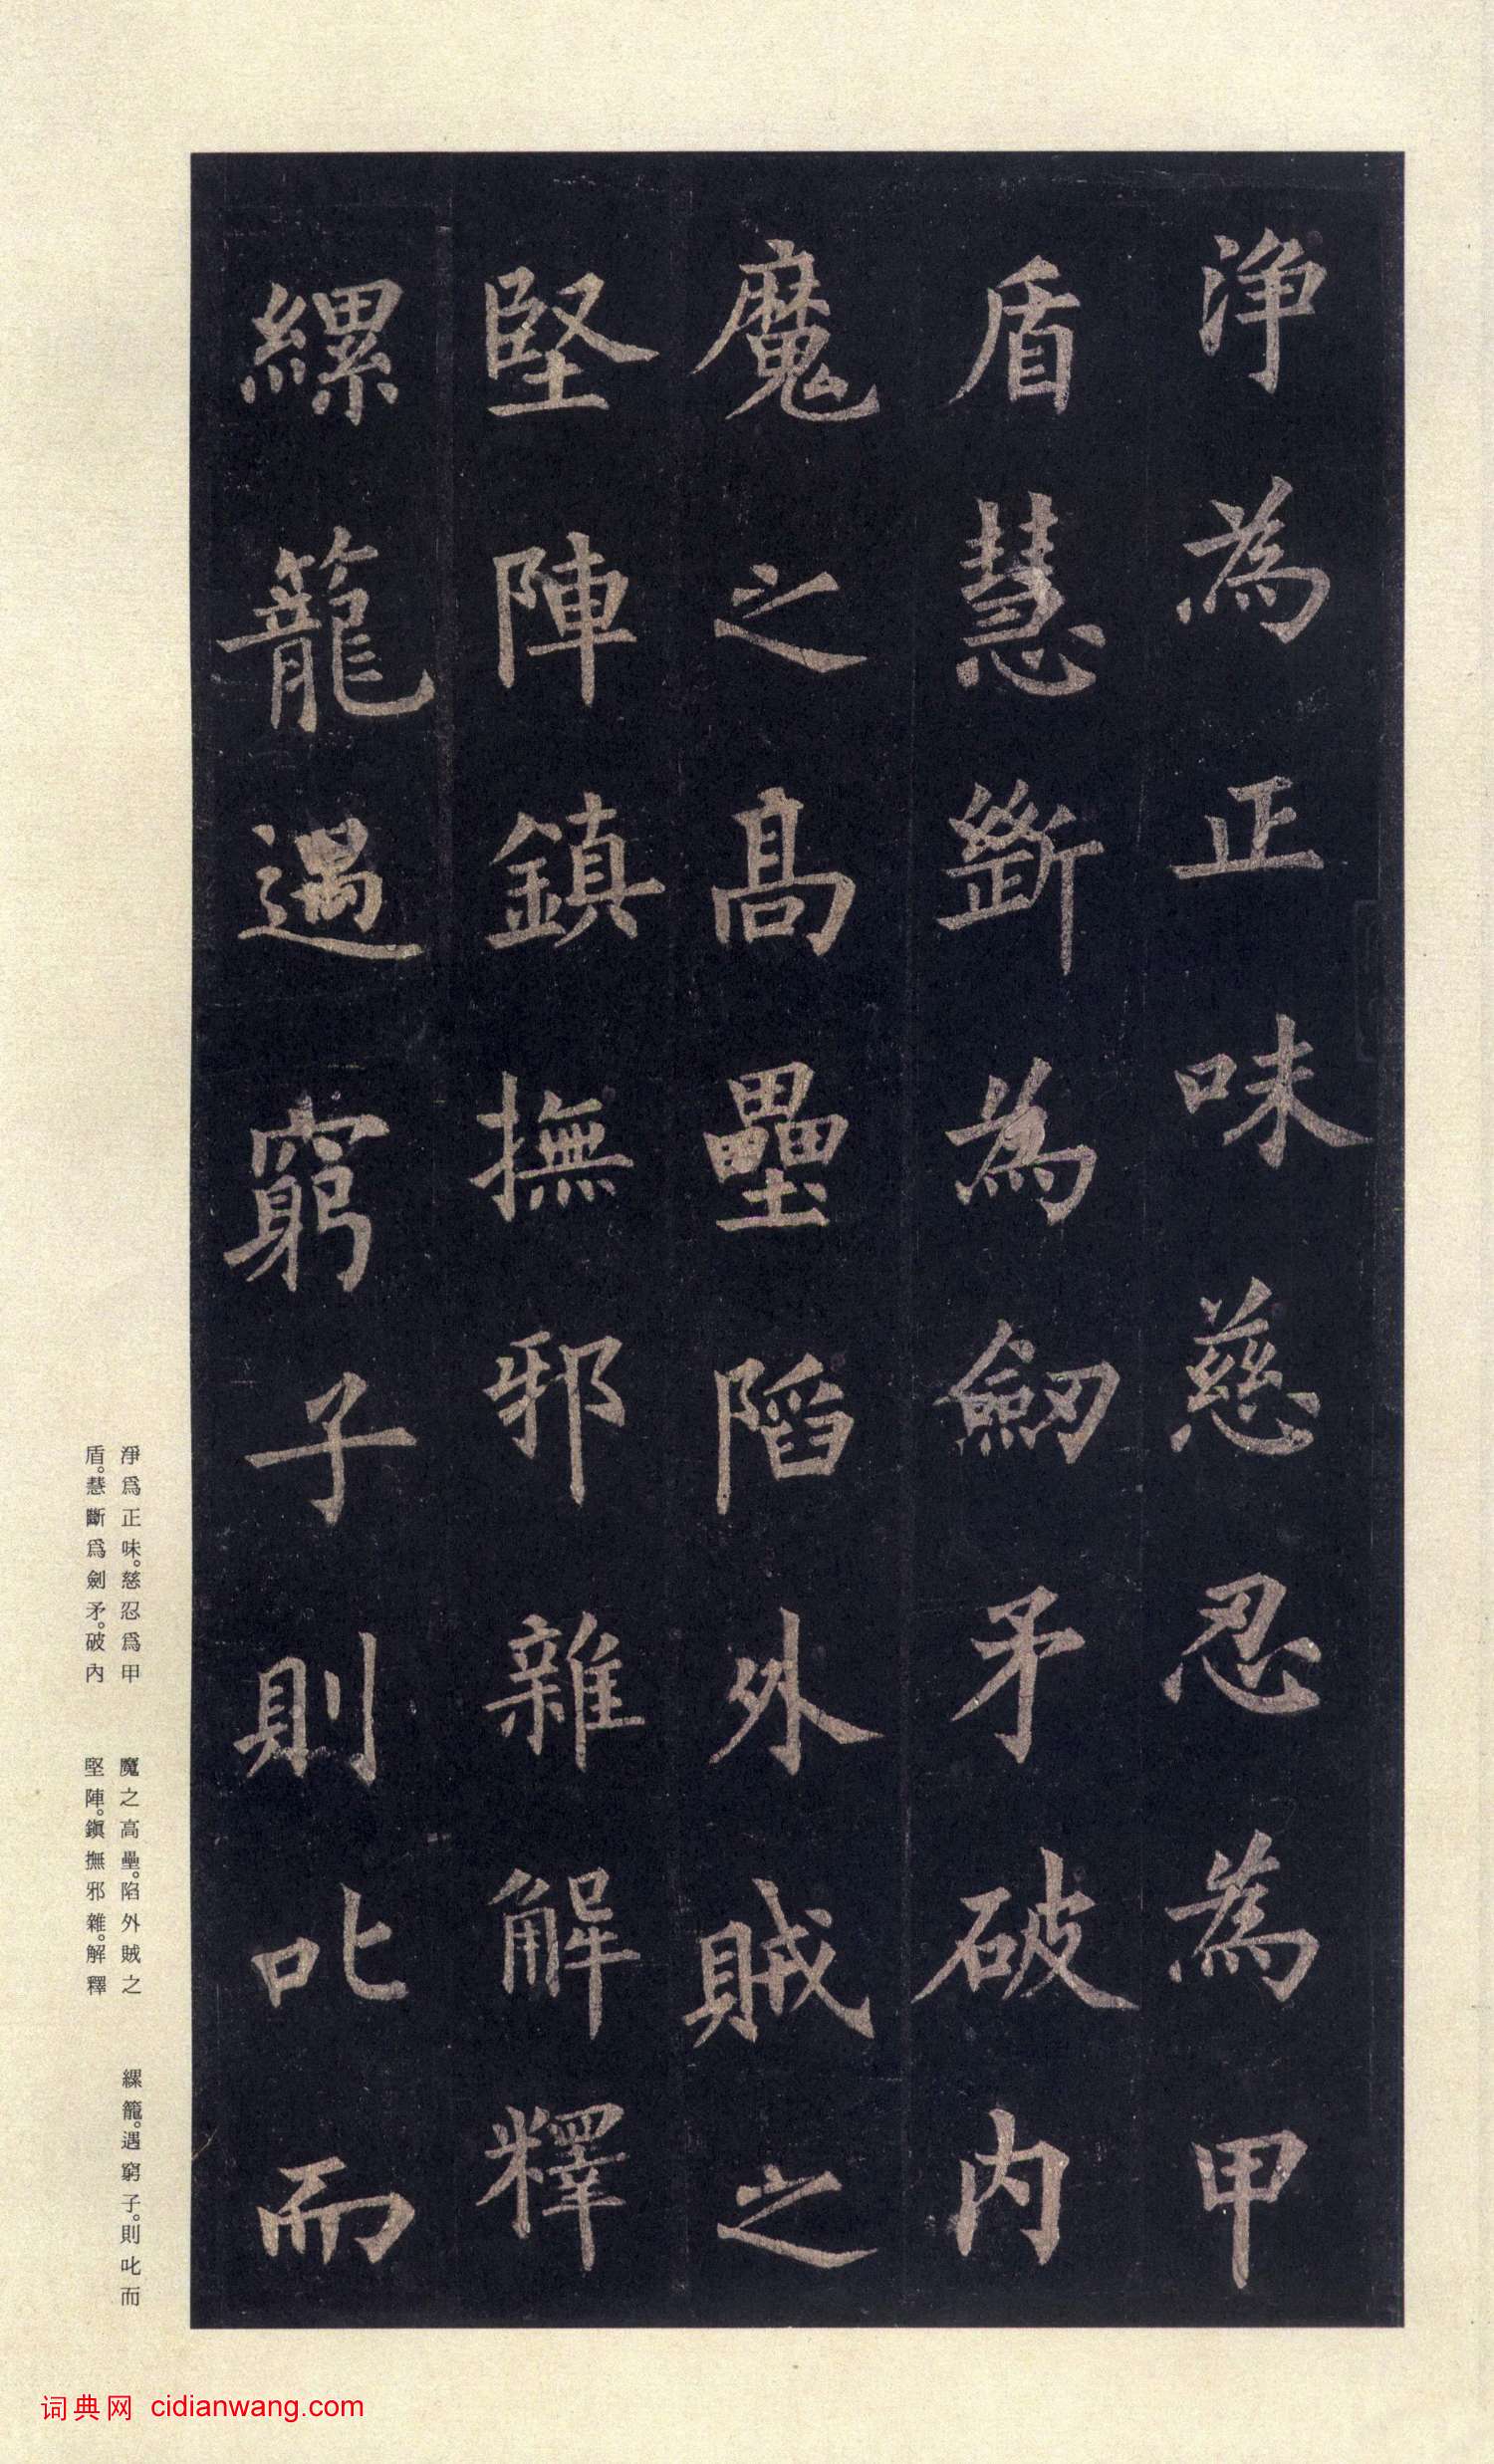 淨為正味慈忍為甲
盾慧斷為劒矛破内
魔之高壘陷外賊之
堅陣鎮撫邪雜解釋
縲籠遇窮子則叱而
淨爲正味。慈忍爲甲
盾。慧斷爲劍矛。破內
魔之高壘。陷外賊之
堅陣。鎭撫邪雜。解釋
縲籠。遇窮子。則叱而
词典网 cidianwang.com